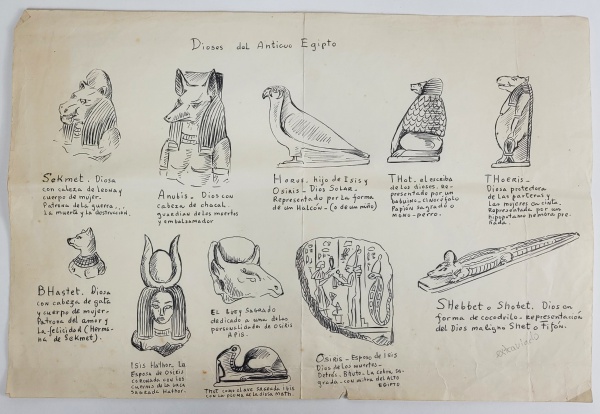 Dioses del Antiguo Egipto
Sekmet. Diosa
con cabeza de leona y
cuerpo de mujer.
Patrona de la guerra...
La muerte y la destrucción.
Anubis. Dios con
cabeza de chacal.
guardian de los muertos
y embalsamador
Horus. hijo de Isis y
Osiris - Dios Solar.
Representado por la forma
de un halcón. (o de un niño)
Thot. el escriba
de los dioses. Re-
presentado por un
babuino, cinocéfalo
Papión sagrado o
mono-perro.
Thoeris.
Diosa protectora
de las parteras y
las mujeres en cinta.
Representada por un
hipopótamo hembra pre-
ñada.
Bhastet. Diosa
con cabeza de gata
y cuerpo de mujer.
Patrona del amor y
la felicidad (Herma-
na de Sekmet).
Isis Hathor. La
Esposa de Osiris
coronada con los
cuernos de la vaca
sagrada Hathor.
El buey sagrado
dedicado a una de las
personalidades de Osiris
APIS.
Thot como clave sagrada Isis
con la pluma de la diosa Math.
Osiris - Esposo de Isis
Dios de los muertos.
Detrás. Bhuto. La cobra sa-
grada - con mitra del Alto
Egipto
Shebbet o Shobet. Dios en
forma de cocodrilo. representación
del Dios maligno Shet o Tifón.